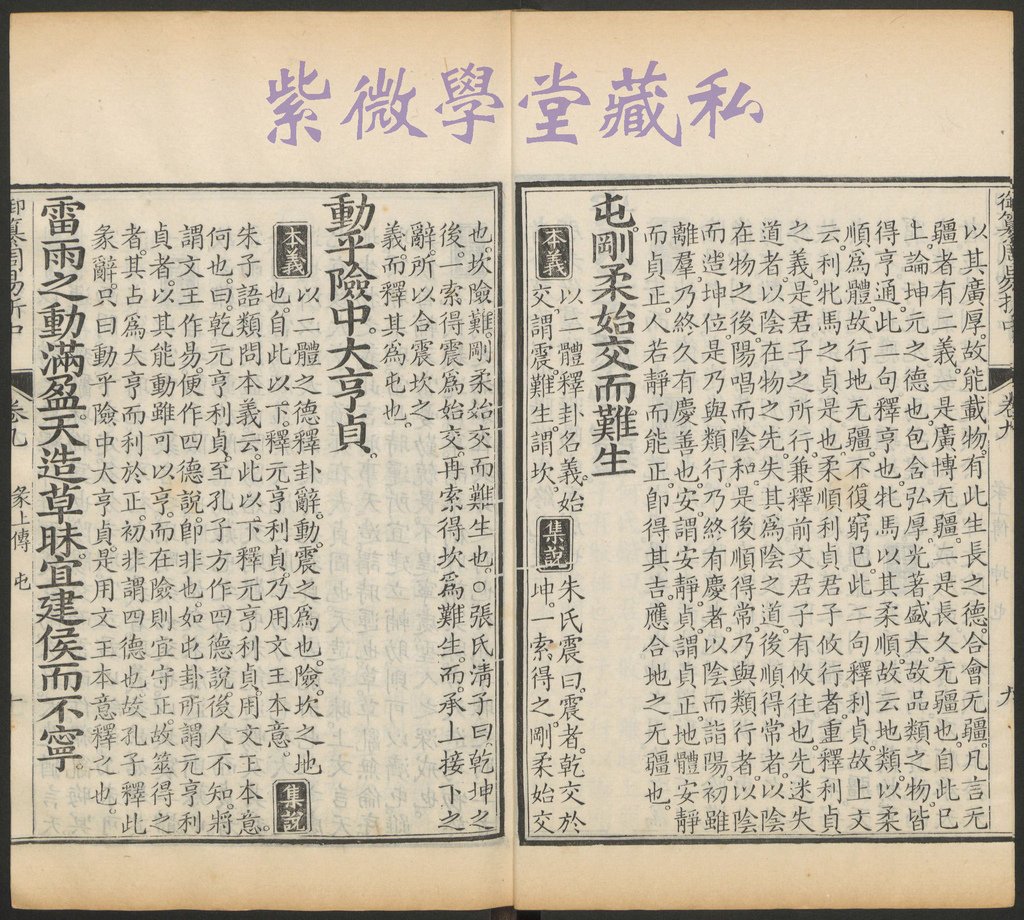 紫微學堂藏私
以其廣厚。故能載物。有此生長之德。合會无疆。凡言无
疆者有二義。一是廣博无疆。二是長久无疆也。自此已
上。論坤元之德也。包含弘厚。光著盛大。故品類之物。皆
得亨通。此二句釋亨也。牝馬以其柔順。故云地類。以柔
順爲體。故行地无疆。不復窮已。此二句釋利貞。故上文
云。利牝馬之貞是也。柔順利貞。君子攸行者。重釋利貞
之義。是君子之所行。兼釋前文君子有攸往也。先迷失
道者。以陰在物之先。失其爲陰之道。後順得常者。以陰
在物之後。陽唱而陰和。是後順得常。乃與類行者。以陰
而造坤位。是乃與類行。乃終有慶者。以陰而詣陽。初雖
離羣。乃終久有慶善也。安謂安靜。貞謂貞正。地體安靜
而貞正。人若靜而能正。卽得其吉。應合地之无疆也。
屯。剛柔始交而難生。
本義
以二體釋卦名義。始
交。謂震。難生。謂坎。
集說
朱氏震曰。震者。乾交於
坤。一索得之。剛柔始交
也。坎險難。剛柔始交而難生也。○張氏淸子曰。乾坤之
後。一索得震爲始交。再索得坎爲難生。而承上接下之
辭。所以合震坎之
義。而釋其爲屯也。
動乎險中。大亨貞。
本義
以二體之德釋卦辭。動。震之爲也。險。坎之地
也。自此以下。釋元亨利貞。乃用文王本意。
集說
朱子語類問。本義云。此以下釋元亨利貞。用文王本意。
何也。曰。乾元亨利貞。至孔子方作四德說。後人不知。將
謂文王作易。便作四德說。卽非也。如屯卦所謂元亨利
貞者。以其能動。雖可以亨。而在險則宜守正。故筮得之
者。其占爲大亨而利於正。初非謂四德也。故孔子釋此
彖辭。只曰動乎險中大亨貞。是用文王本意釋之也。
雷雨之動滿盈。天造草昧。宜建侯而不寧。
卷九
彖上傳
屯